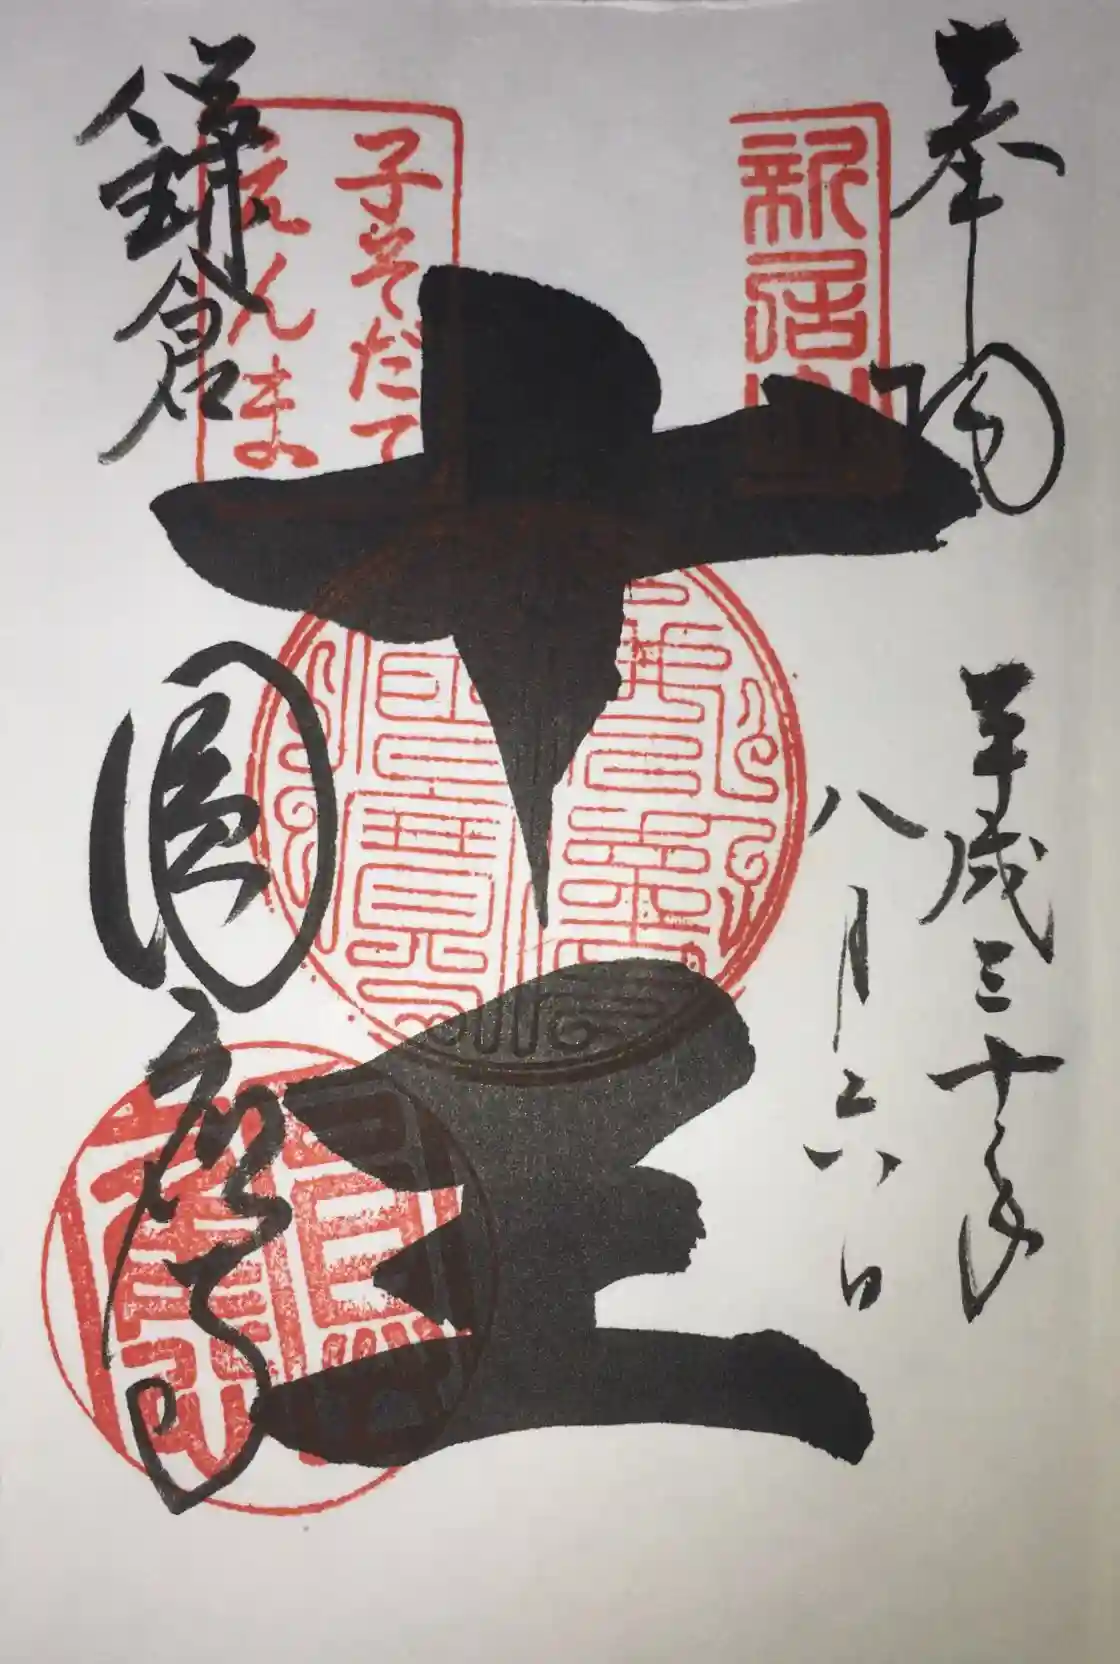 奉拝
新居山
平成三十年
八月二六日
十王
子そだて
えんま
鎌倉
圓應寺